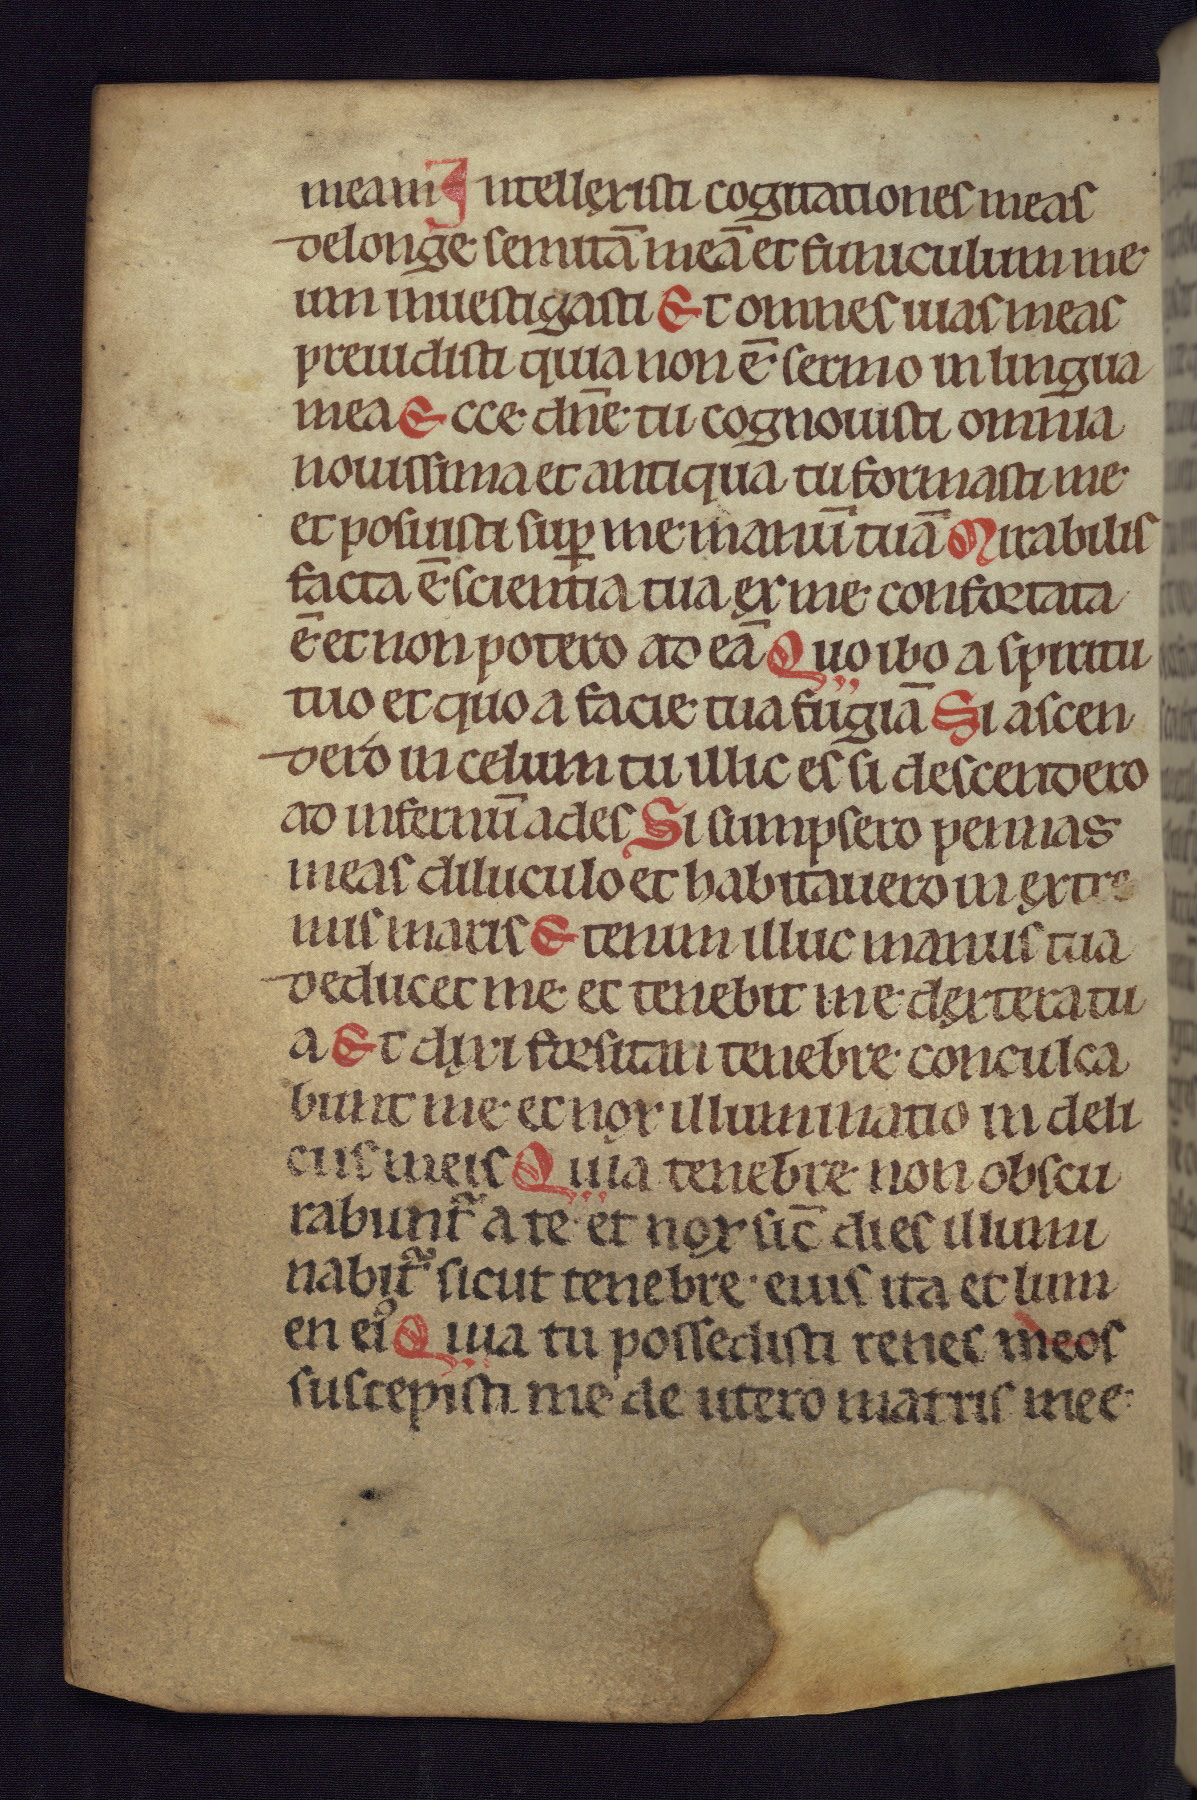 meam Intellexisti cogitationes meas
de longe semitā meā et funiculum me
um inuestigasti Et omnes uias meas
preuidisti quia non ē sermo in lingua
mea Ecce dn̄e tu cognouisti omnia
nouissima et antiqua tu formasti me
et posuisti suꝑ me manū tuā Mirabilis
facta ē scientia tua ex me confortata
ē et non potero ad eā Quo ibo a spiritu
tuo et quo a facie tua fugiā Si ascen
dero in celum tu illic es si descendero
ad infernū ades Si sumpsero pennas
meas diluculo et habitauero in extre
mis maris Etenim illuc manus tua
deducet me et tenebit me dextera tu
a Et dixi forsitan tenebre conculca
bunt me et nox illuminatio in deli
ciis meis Quia tenebre non obscu
rabunt᷑ a te et nox sic̄ dies illumi
nabit᷑ sicut tenebre eius ita et lum
en eiꝰ Quia tu possedisti renes meos
suscepisti me de utero matris mee